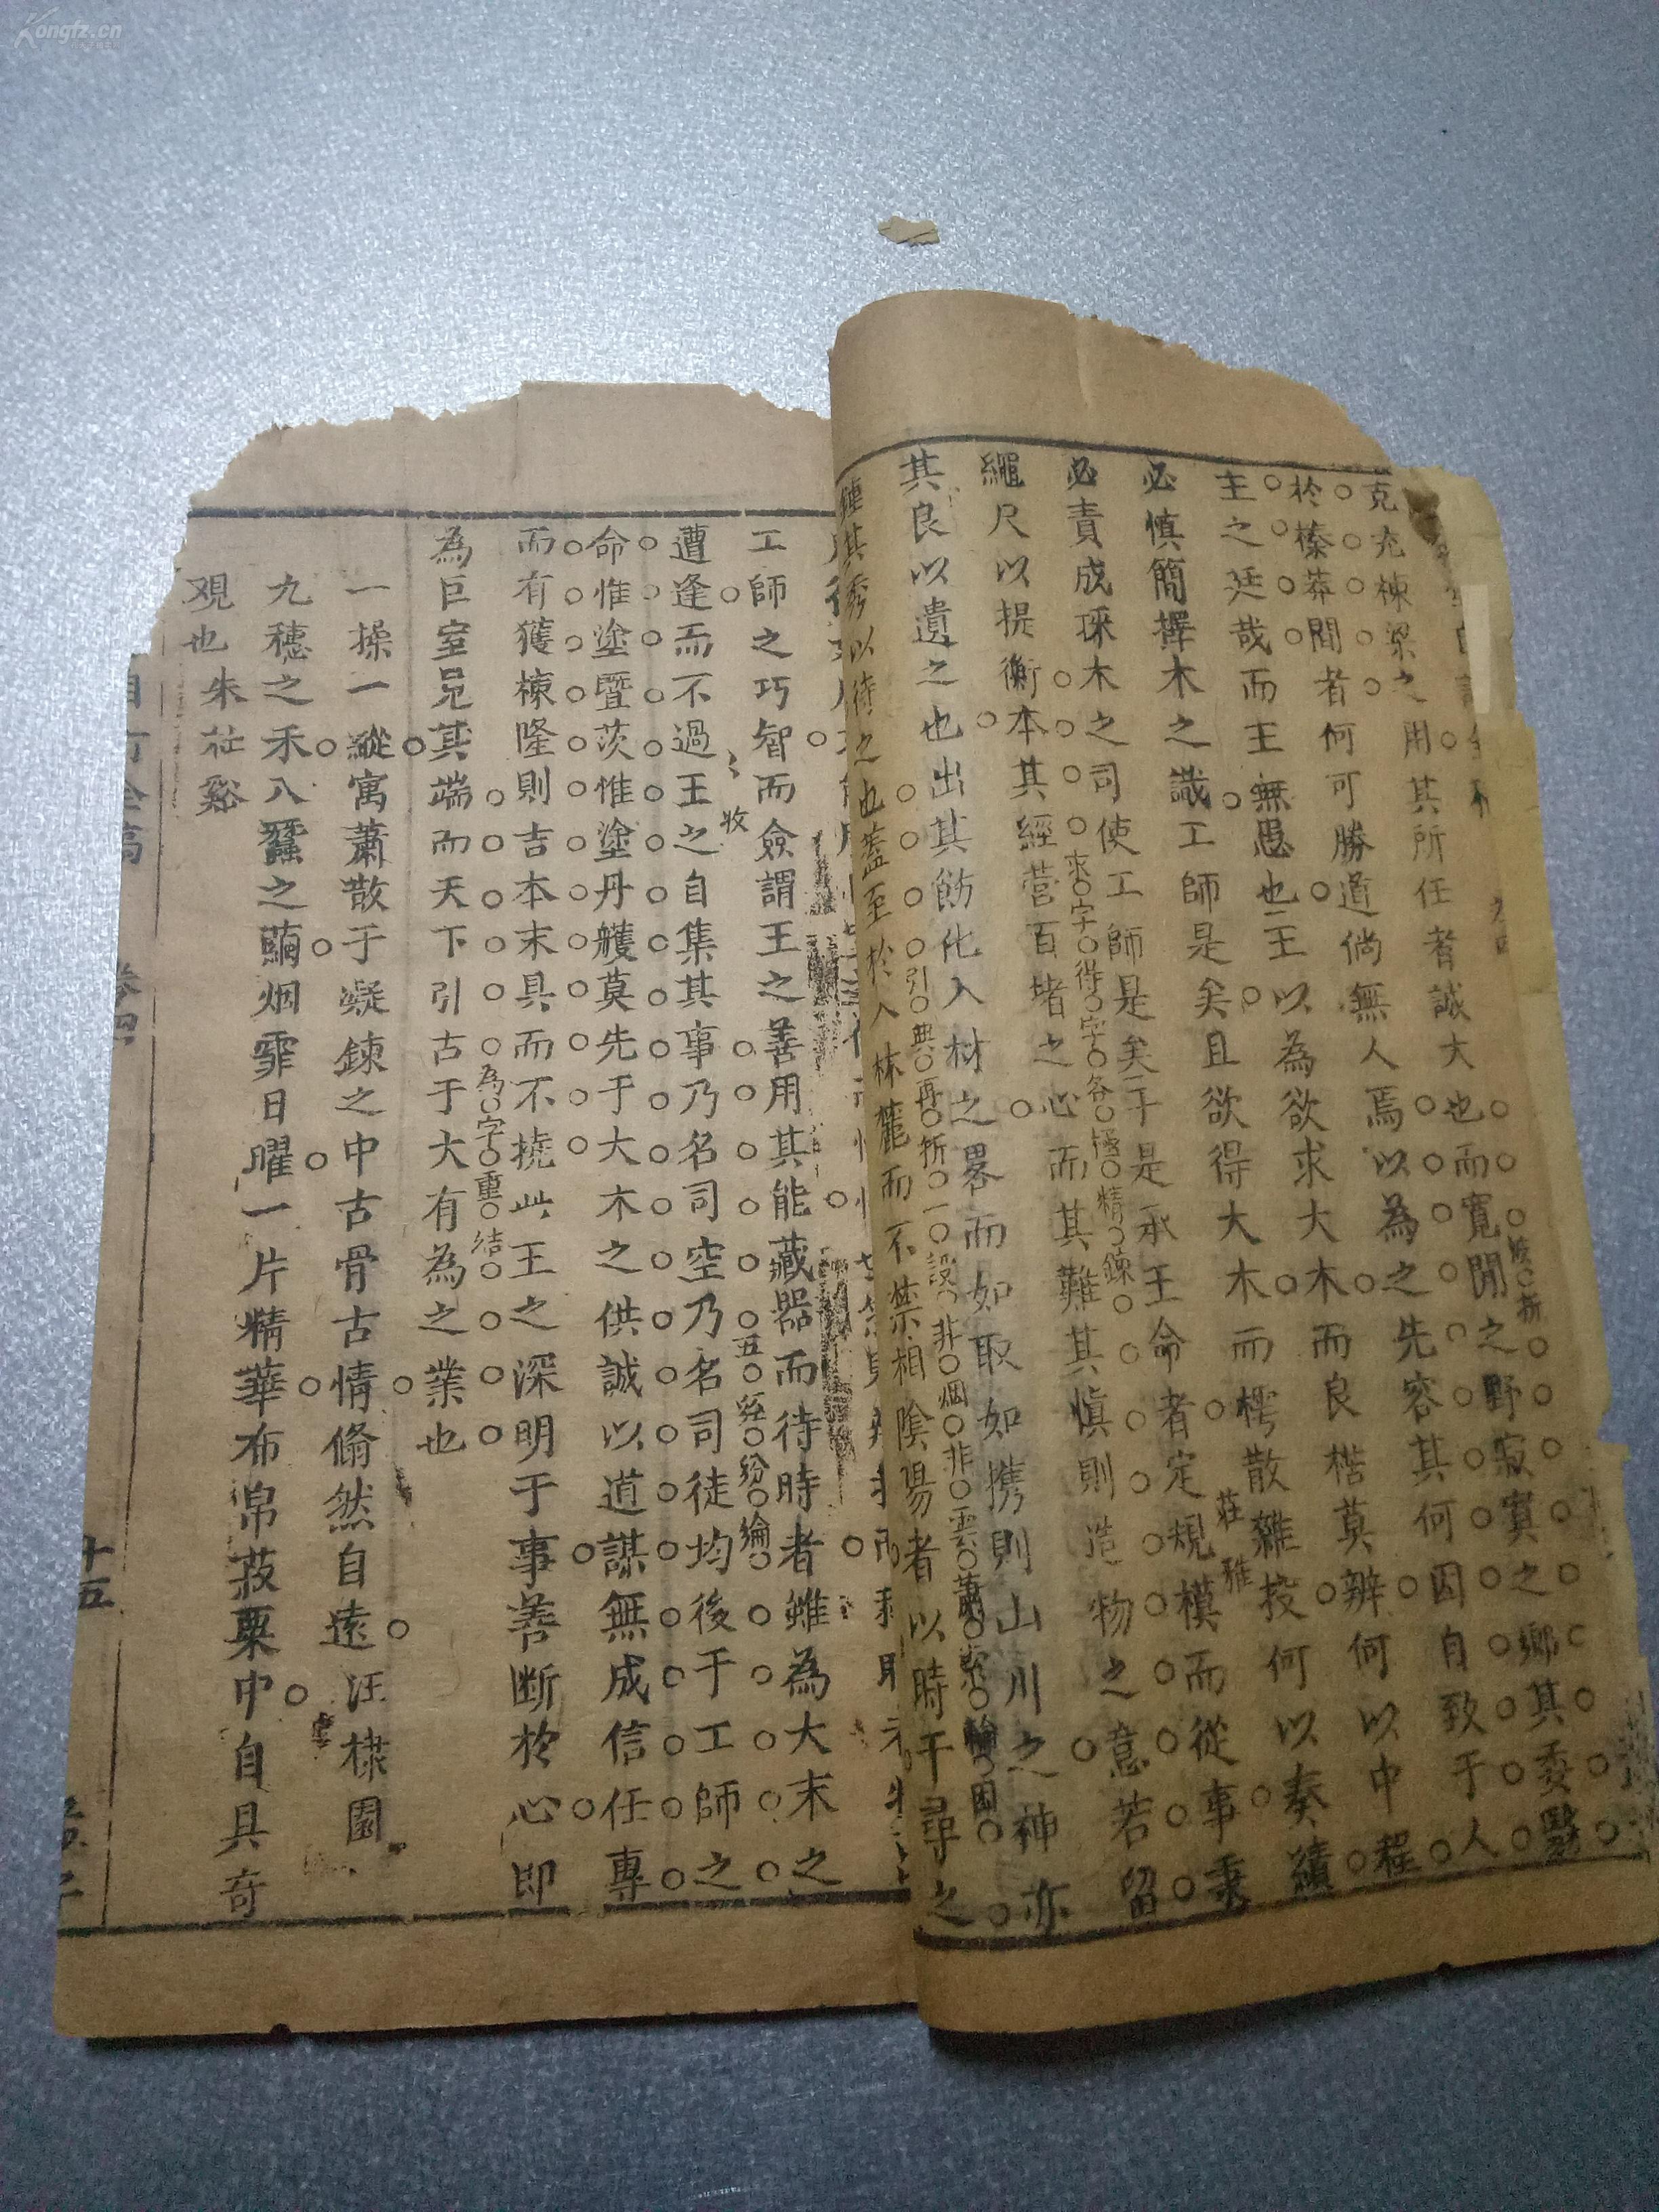 Kongfz.cn
克充棟梁之用其所任者誠大也而寛閒之野寂寞之鄉其委翳
於榛莽間者何可勝道倘無人焉以為之先容其何因自致于人
主之廷哉而王無愚也王以為欲求大木而良楛莫辨何以中程
必慎簡擇木之識工師是矣且欲得大木而樗散雜投何以奏績
莊雅
必責成琢木之司使工師是矣于是承王命者定規模而從事秉
求字得字各極精鍊
繩尺以提衡本其經營百堵之心而其難其慎則造物之意若留
其良以遺之也出其飭化入材之畧而如取如携則山川之神亦
引典再折一段非烟非雲蕭索輪囷
鍾其秀以待之也蓋至於入林麓而不禁相陰陽者以時干尋之
工師之巧智而僉謂王之善用其能藏器而待時者雖為大木之
收
五經紛綸
遭逢而不過王之自集其事乃名司空乃名司徒均後于工師之
命惟塗塈茨惟塗丹雘莫先于大木之供誠以道謀無成信任專
而有獲棟隆則吉本末具而不撓此王之深明于事善断於心即
為字重結
為巨室見其端而天下引古于大有為之業也
一操一縱寓蕭散于凝鍊之中古骨古情翛然自遠汪棣園
九穗之禾八蠶之繭烟霏日曜一片精華布帛菽粟中自具奇
觀也朱祉谿
卷四
十五